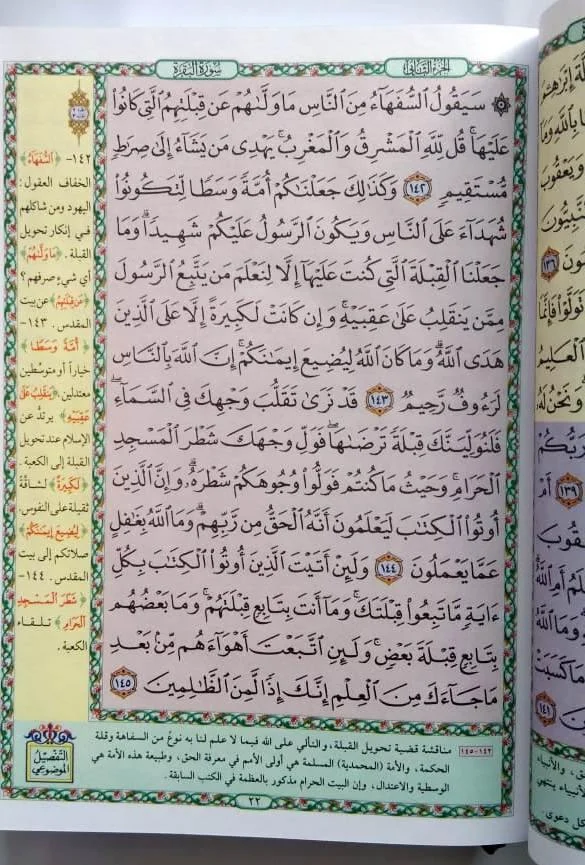 سورة البقرة
الجزء الثاني
سَيَقُولُ ٱلسُّفَهَآءُ مِنَ ٱلنَّاسِ مَا وَلَّىٰهُمْ عَن قِبْلَتِهِمُ ٱلَّتِى كَانُوا۟
عَلَيْهَا ۚ قُل لِّلَّهِ ٱلْمَشْرِقُ وَٱلْمَغْرِبُ ۚ يَهْدِى مَن يَشَآءُ إِلَىٰ صِرَٰطٍ
مُّسْتَقِيمٍ ١٤٢ وَكَذَٰلِكَ جَعَلْنَٰكُمْ أُمَّةً وَسَطًا لِّتَكُونُوا۟
شُهَدَآءَ عَلَى ٱلنَّاسِ وَيَكُونَ ٱلرَّسُولُ عَلَيْكُمْ شَهِيدًا ۗ وَمَا
جَعَلْنَا ٱلْقِبْلَةَ ٱلَّتِى كُنتَ عَلَيْهَآ إِلَّا لِنَعْلَمَ مَن يَتَّبِعُ ٱلرَّسُولَ
مِمَّن يَنقَلِبُ عَلَىٰ عَقِبَيْهِ ۚ وَإِن كَانَتْ لَكَبِيرَةً إِلَّا عَلَى ٱلَّذِينَ
هَدَى ٱللَّهُ ۗ وَمَا كَانَ ٱللَّهُ لِيُضِيعَ إِيمَٰنَكُمْ ۚ إِنَّ ٱللَّهَ بِٱلنَّاسِ
لَرَءُوفٌ رَّحِيمٌ ١٤٣ قَدْ نَرَىٰ تَقَلُّبَ وَجْهِكَ فِى ٱلسَّمَآءِ ۖ
فَلَنُوَلِّيَنَّكَ قِبْلَةً تَرْضَىٰهَا ۚ فَوَلِّ وَجْهَكَ شَطْرَ ٱلْمَسْجِدِ
ٱلْحَرَامِ ۚ وَحَيْثُ مَا كُنتُمْ فَوَلُّوا۟ وُجُوهَكُمْ شَطْرَهُۥ ۗ وَإِنَّ ٱلَّذِينَ
أُوتُوا۟ ٱلْكِتَٰبَ لَيَعْلَمُونَ أَنَّهُ ٱلْحَقُّ مِن رَّبِّهِمْ ۗ وَمَا ٱللَّهُ بِغَٰفِلٍ
عَمَّا يَعْمَلُونَ ١٤٤ وَلَئِنْ أَتَيْتَ ٱلَّذِينَ أُوتُوا۟ ٱلْكِتَٰبَ بِكُلِّ
ءَايَةٍ مَّا تَبِعُوا۟ قِبْلَتَكَ ۚ وَمَآ أَنتَ بِتَابِعٍ قِبْلَتَهُمْ ۚ وَمَا بَعْضُهُم
بِتَابِعٍ قِبْلَةَ بَعْضٍ ۚ وَلَئِنِ ٱتَّبَعْتَ أَهْوَآءَهُم مِّنۢ بَعْدِ
مَا جَآءَكَ مِنَ ٱلْعِلْمِ ۙ إِنَّكَ إِذًا لَّمِنَ ٱلظَّٰلِمِينَ ١٤٥
١٤٢- ﴿ٱلسُّفَهَآءُ﴾
الخفاف العقول:
اليهود ومن شاكلهم
في إنكار تحويل
القبلة. ﴿مَا وَلَّىٰهُمْ﴾
أي شيء صرفهم؟
﴿عَن قِبْلَتِهِمُ﴾ عن بيت
المقدس. ١٤٣-
﴿أُمَّةً وَسَطًا﴾
خياراً أو متوسِّطين
معتدلين. ﴿يَنقَلِبُ عَلَىٰ
عَقِبَيْهِ﴾ يرتدُّ عن
الإسلام عند تحويل
القبلة إلى الكعبة.
﴿لَكَبِيرَةً﴾ لشاقَّة
ثقيلة على النفوس.
﴿لِيُضِيعَ إِيمَٰنَكُمْ﴾
صلاتكم إلى بيت
المقدس. ١٤٤-
﴿شَطْرَ ٱلْمَسْجِدِ
ٱلْحَرَامِ﴾ تلقاء
الكعبة.
التفصيل
الموضوعي
١٤٢-١٤٥ مناقشة قضية تحويل القبلة، والتألي على الله فيما لا علم لنا به نوعٌ من السفاهة وقلة
الحكمة، والأمة (المحمدية) المسلمة هي أولى الأمم في معرفة الحق، وطبيعة هذه الأمة هي
الوسطية والاعتدال، وإن البيت الحرام مذكور بالعظمة في الكتب السابقة.
٢٢